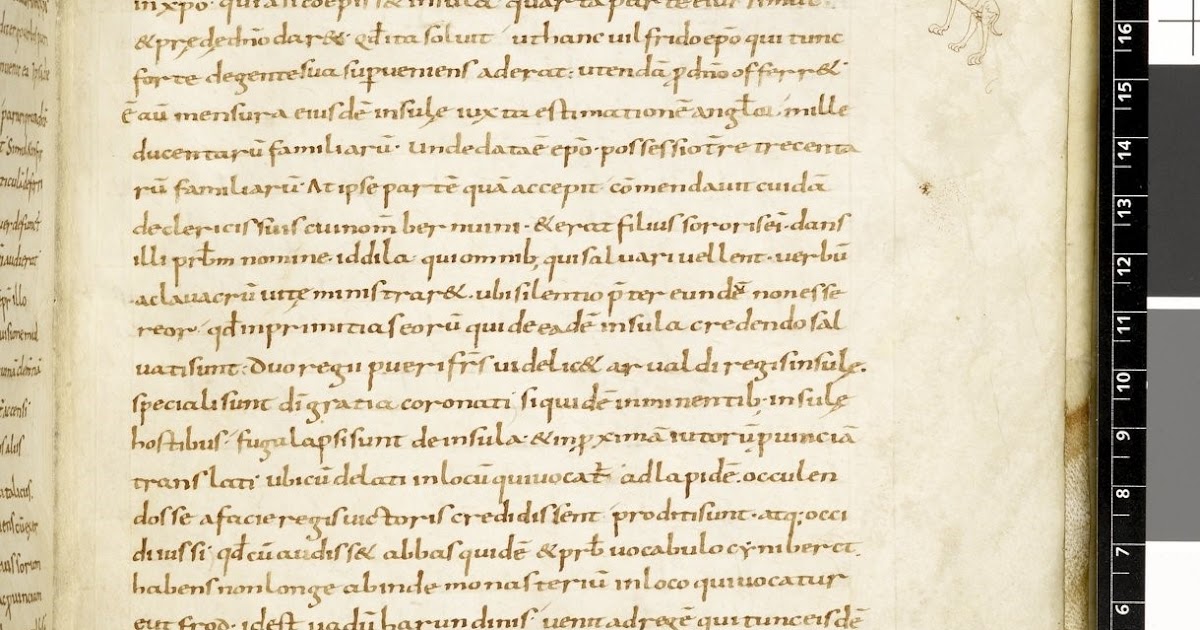 & prędę dño dar& qđ ita soluit ut hanc uilfrido epō qui tunc
forte de gente sua supueniens aderat: utendā p dño offerr&
ē aū mensura eiusdē insulę iuxta estimationē angłoꝝ mille
ducentarū familiarū· Unde data ē epō possessio tr̄e trecenta
rū familiarū· At ipse partē quā accepit cōmendauit cuidā
de clericis suis cui nom̄ bernuini· & erat filius sororis ei· dans
illi prb̄m nomine· iddila qui omnib; qui saluari uellent· uerbū
ac lauacrū uitę ministrar&· ubi silentio p̄tereundū non esse
reor· qđ in primitias eorū qui de eadē insula credendo sal
uati sunt: Duo regii pueri frs̄ uidelic& arualdi regis insulę·
speciali sunt dī gratia coronati· siquidē inminentib· insulę
hostibus· fuga lapsi sunt de insula· & in pximā iutorū puinciā
translati· ubi cū delati in locū qui uocat̄ ad lapidē· occulen
dos se a facie regis uictoris credidissent· proditi sunt· atq; occi
di iussi· qđ cū audiss& abbas quidē & prb̄ uocabulo cyniberct·
habens non longe ab inde monasteriū in loco qui uocatur
eut frod· id est uadū harundinis· uenit ad regē qui tunc eisdē
16
15
14
13
12
11
10
9
8
7
6